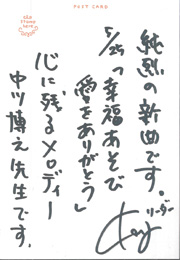 POST CARD
純烈の新曲です。
5/25「幸福あそび
愛をありがとう」
心に残るメロディー
中川博之先生です。
リーダー